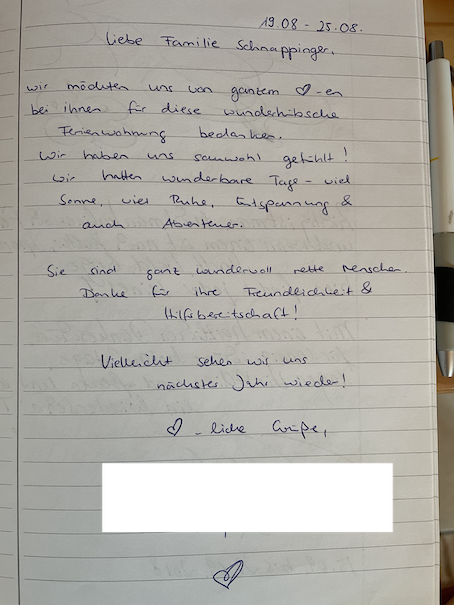 19.08 - 25.08.
Liebe Familie Schnappinger,
wir möchten uns von ganzem ♡-en
bei ihnen für diese wunderhübsche
Ferienwohnung bedanken.
Wir haben uns sauwohl gefühlt!
Wir hatten wunderbare Tage - viel
Sonne, viel Ruhe, Entspannung &
auch Abenteuer.
Sie sind ganz wundervoll nette Menschen.
Danke für ihre Freundlichkeit &
Hilfsbereitschaft!
Vielleicht sehen wir uns
nächstes Jahr wieder!
♡ - liche Grüße,